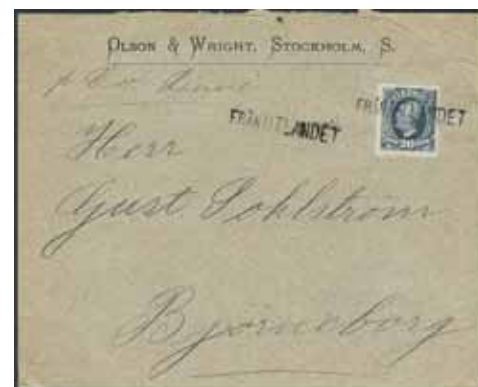 OLSON & WRIGHT, STOCKHOLM, S.
FRÅN UTLANDET
FRÅN UTLANDET
20
Herr
Gust. Sohlström
Björneborg